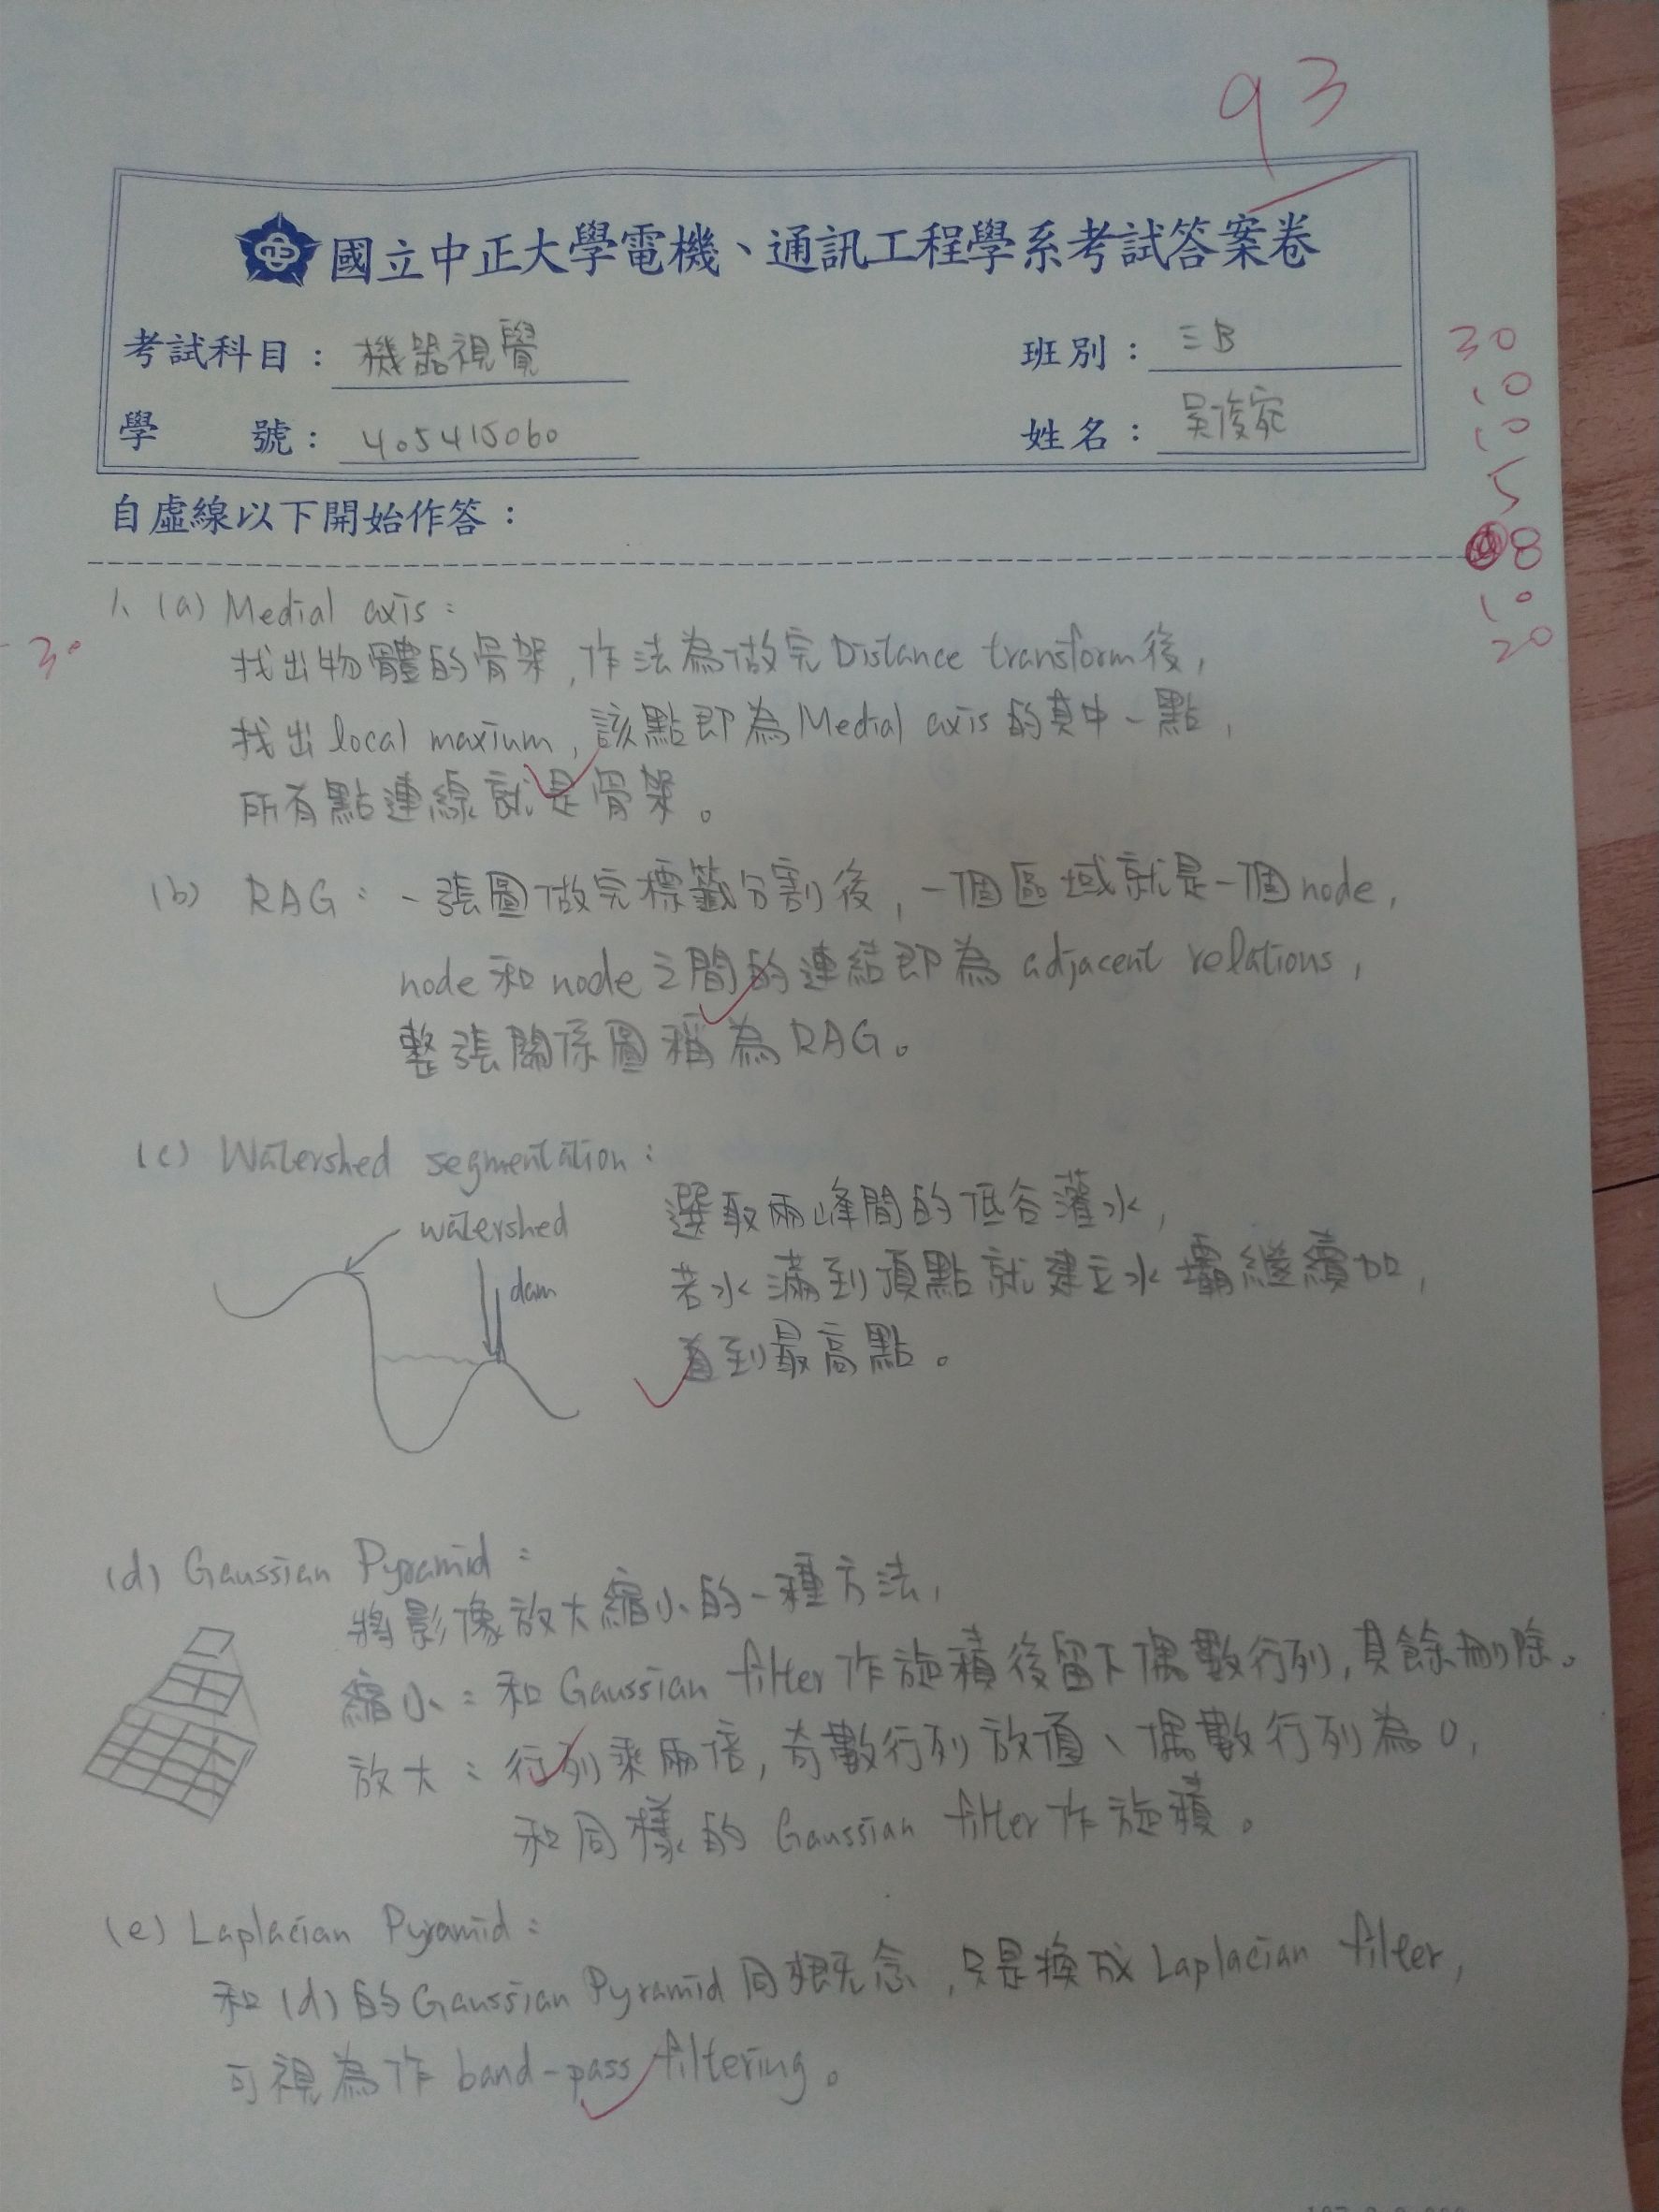 93
國立中正大學電機、通訊工程學系考試答案卷
考試科目：機器視覺
班別：三B
學 號：405415060
姓名：吳俊宛
30
10
10
5
8
10
20
自虛線以下開始作答：
30
1. (a) Medial axis：
找出物體的骨架，作法為做完Distance transform後，
找出local maxium，該點即為Medial axis的其中一點，
所有點連線就是骨架。
(b) RAG：一張圖做完標籤分割後，一個區域就是一個node，
node和node之間的連結即為adjacent relations，
整張關係圖稱為RAG。
(c) Watershed segmentation：
watershed
dam
選取兩峰間的低谷灌水，
若水滿到頂點就建立水壩繼續加，
直到最高點。
(d) Gaussian Pyramid：
將影像放大縮小的一種方法，
縮小：和Gaussian filter作旋積後留下偶數行列，其餘刪除。
放大：行列乘兩倍，奇數行列放值、偶數行列為0，
和同樣的Gaussian filter作旋積。
(e) Laplacian Pyramid：
和(d)的Gaussian Pyramid同概念，只是換成Laplacian filter，
可視為作band-pass filtering。